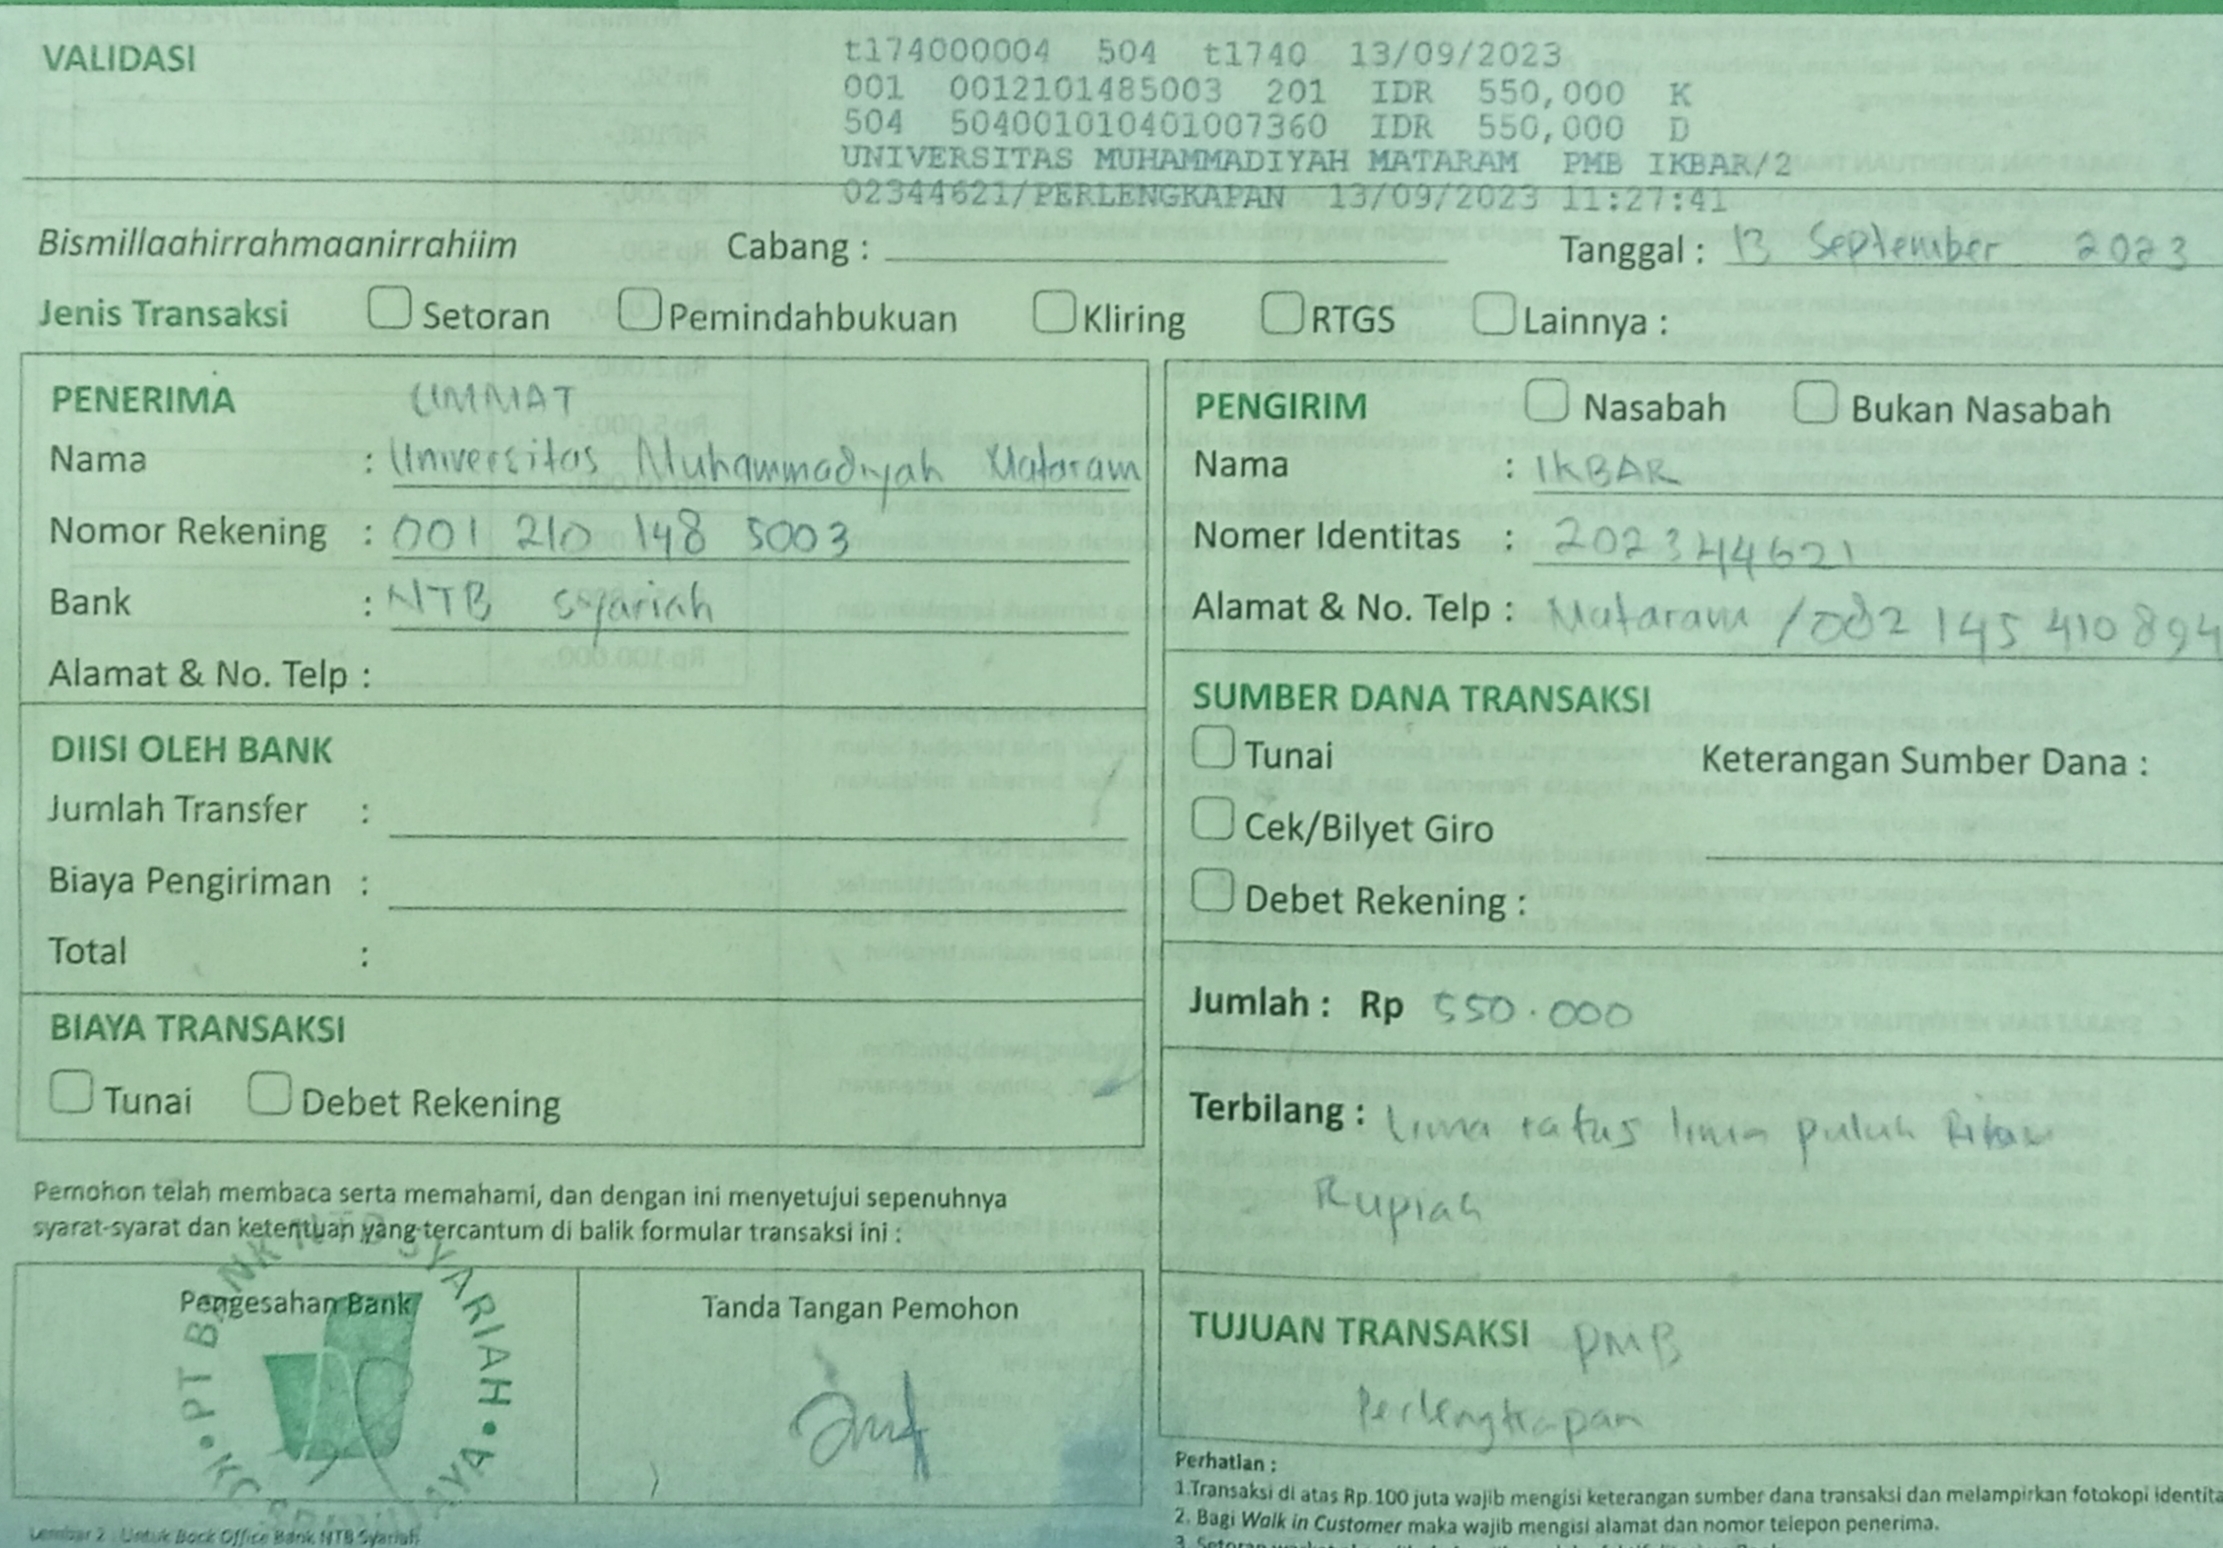 VALIDASI
t174000004 504 t1740 13/09/2023
001 0012101485003 201 IDR 550,000 K
504 504001010401007360 IDR 550,000 D
UNIVERSITAS MUHAMMADIYAH MATARAM PMB IKBAR/2
02344621/PERLENGKAPAN 13/09/2023 11:27:41
Bismillaahirrahmaanirrahiim Cabang : Tanggal : 13 September 2023
Jenis Transaksi Setoran Pemindahbukuan Kliring RTGS Lainnya :
PENERIMA UMMAT
Nama : Universitas Muhammadiyah Mataram
Nomor Rekening : 001 210 148 5003
Bank : NTB Syariah
Alamat & No. Telp :
DIISI OLEH BANK
Jumlah Transfer :
Biaya Pengiriman :
Total :
BIAYA TRANSAKSI
Tunai Debet Rekening
Pemohon telah membaca serta memahami, dan dengan ini menyetujui sepenuhnya
syarat-syarat dan ketentuan yang tercantum di balik formular transaksi ini :
Pengesahan Bank
PT BANK NTB SYARIAH
Tanda Tangan Pemohon
Lembar 2 : Untuk Back Office Bank NTB Syariah
PENGIRIM Nasabah Bukan Nasabah
Nama : IKBAR
Nomer Identitas : 202344621
Alamat & No. Telp : Mataram / 082 145 410 894
SUMBER DANA TRANSAKSI
Tunai Keterangan Sumber Dana :
Cek/Bilyet Giro
Debet Rekening :
Jumlah : Rp 550.000
Terbilang : Lima ratus lima puluh Ribu
Rupiah
TUJUAN TRANSAKSI PMB
Perlengkapan
Perhatian :
1.Transaksi di atas Rp.100 juta wajib mengisi keterangan sumber dana transaksi dan melampirkan fotokopi identita
2. Bagi Walk in Customer maka wajib mengisi alamat dan nomor telepon penerima.